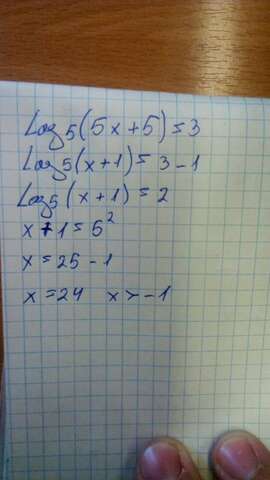 Log₅(5x+5)=3
Log₅(x+1)=3-1
Log₅(x+1)=2
x+1=5²
x=25-1
x=24 x>-1